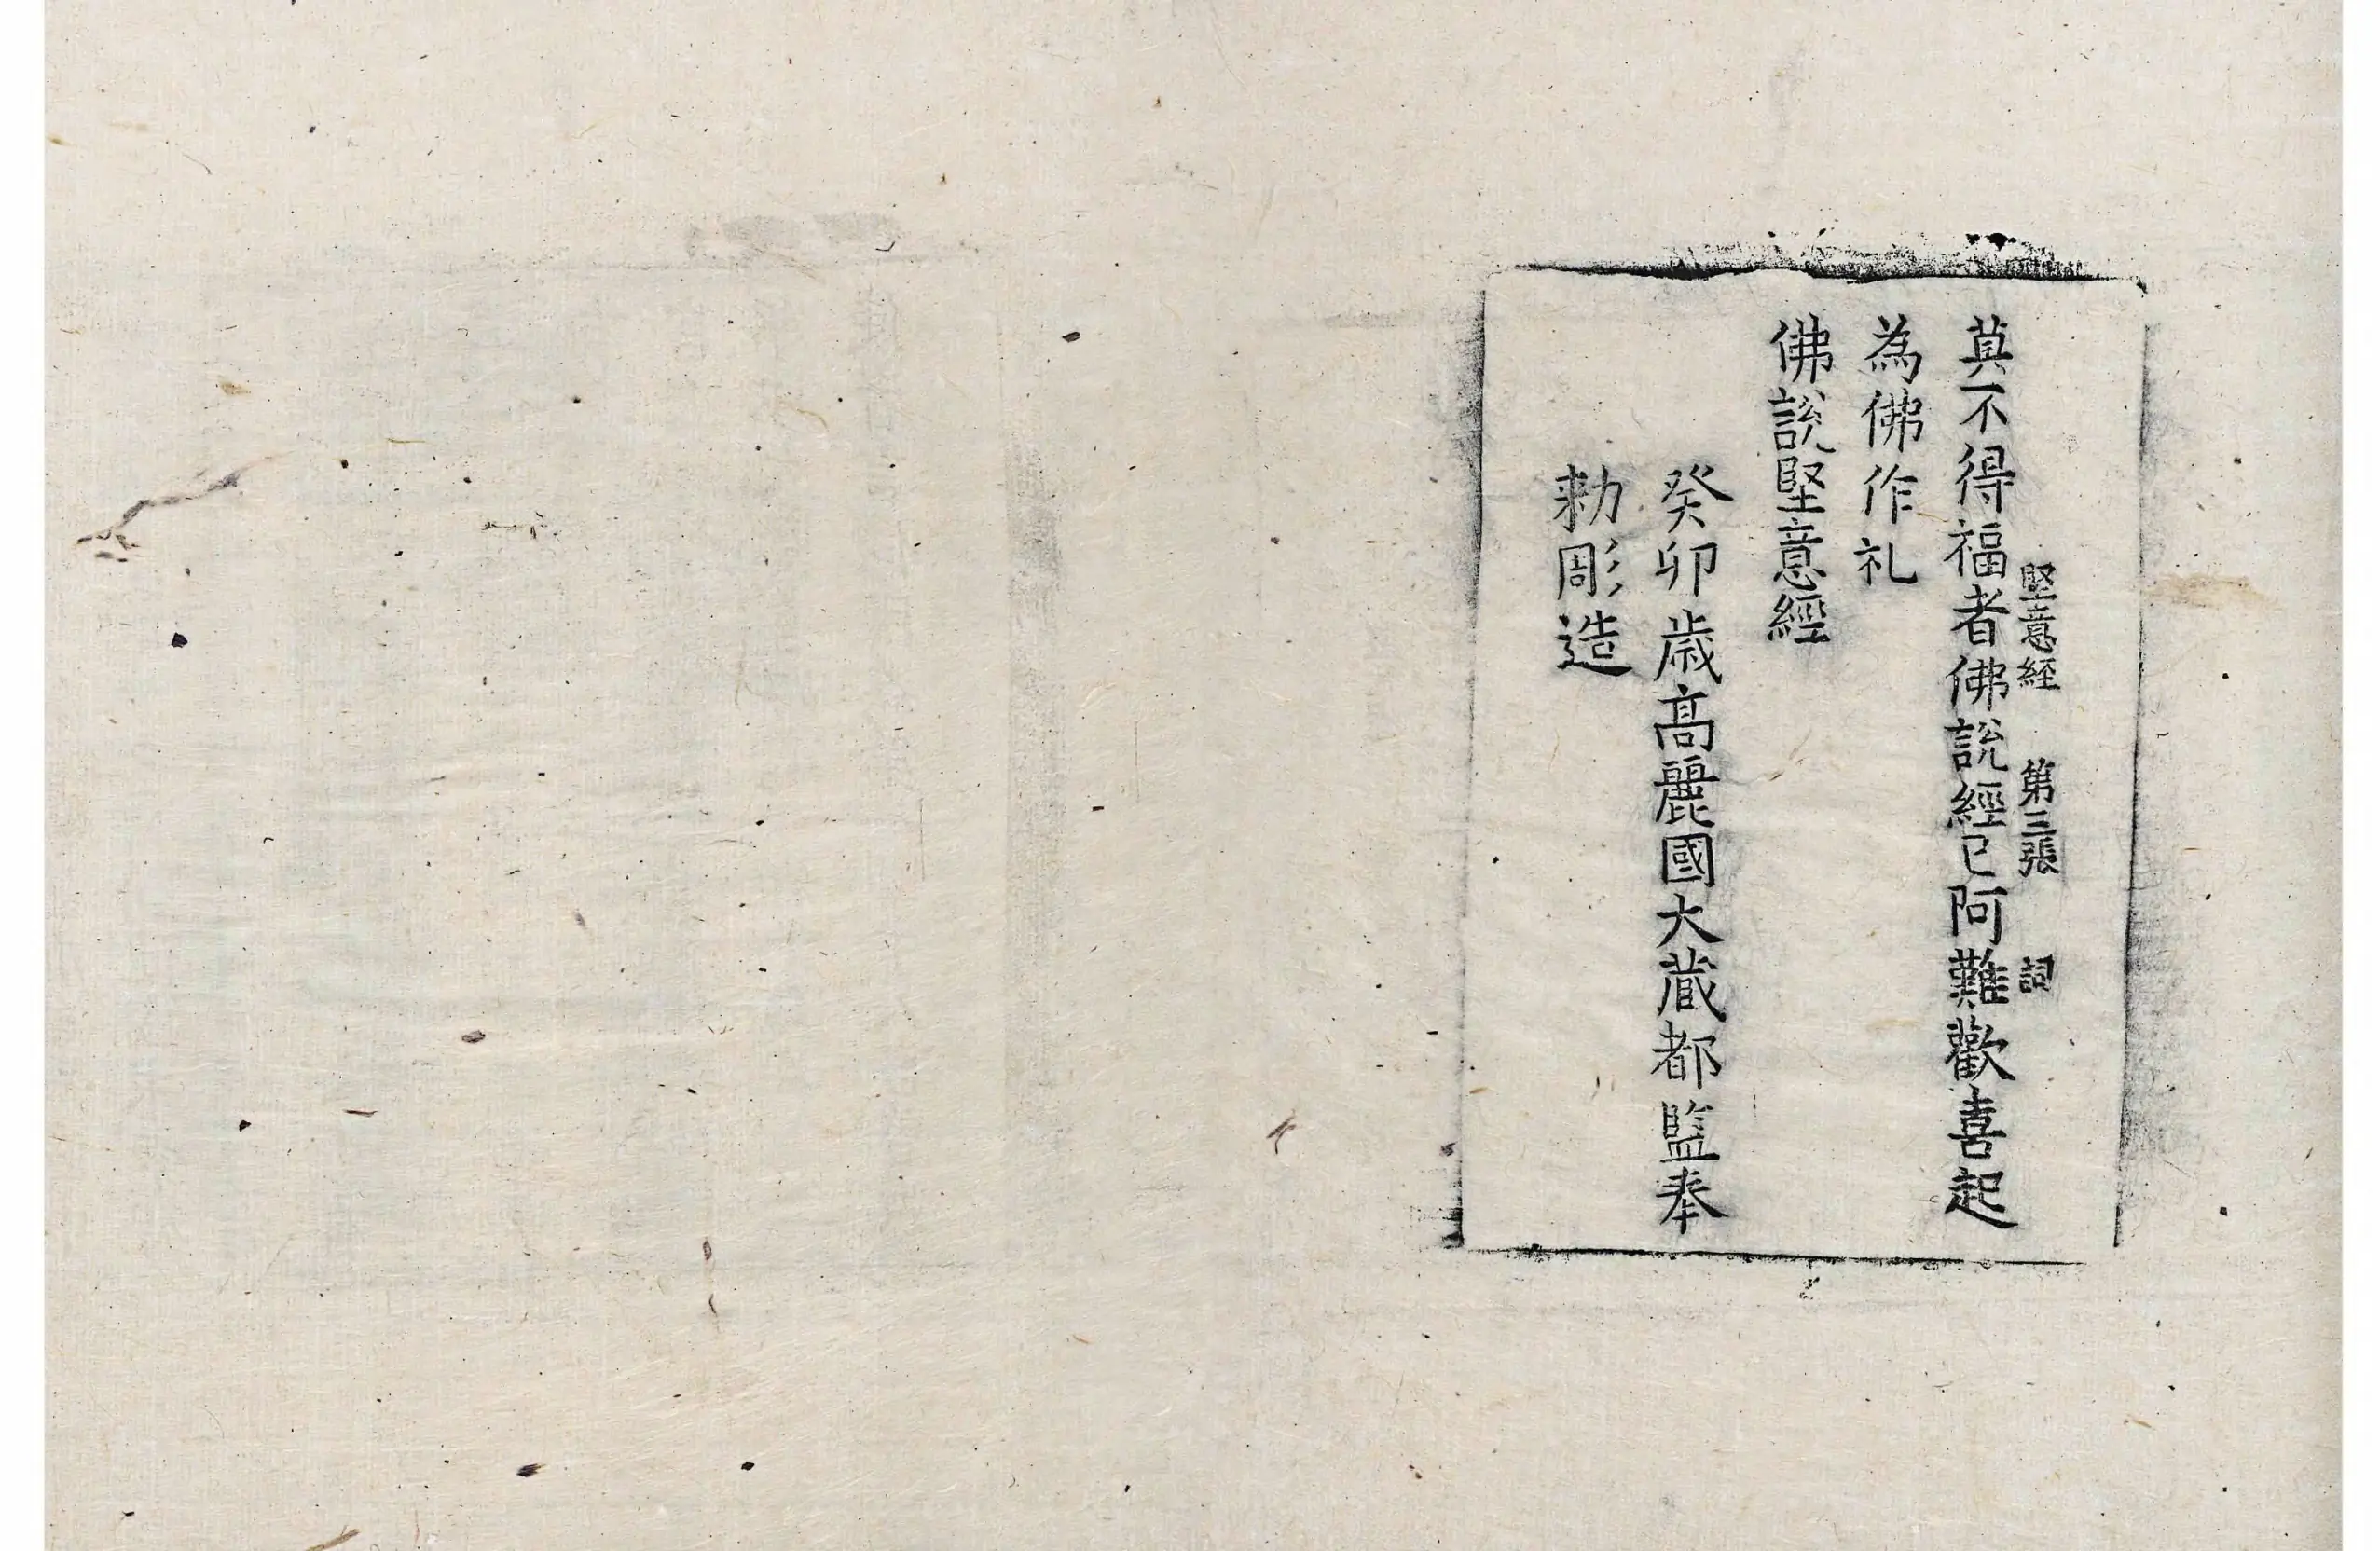 堅意經 第三張 詞
莫不得福者佛說經已阿難歡喜起
為佛作礼
佛說堅意經
癸卯歲高麗國大藏都監奉
勅彫造